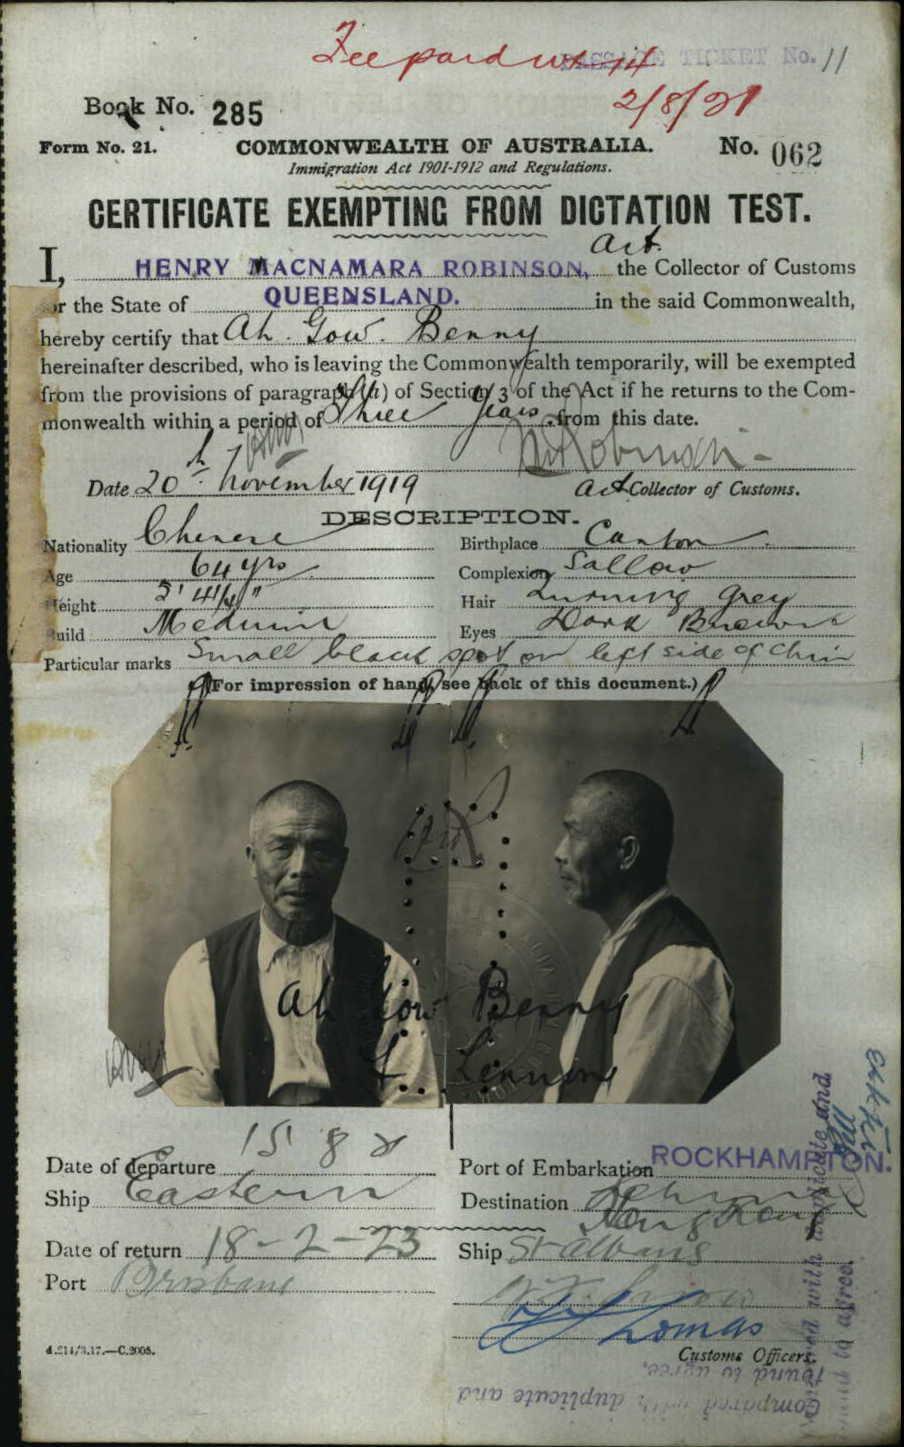 Fee paid
PASSAGE TICKET No. 11
2/8/21
Book No. 285
Form No. 21. COMMONWEALTH OF AUSTRALIA. No. 062
Immigration Act 1901-1912 and Regulations.
CERTIFICATE EXEMPTING FROM DICTATION TEST.
Act.
I, HENRY MACNAMARA ROBINSON, the Collector of Customs
for the State of QUEENSLAND. in the said Commonwealth,
hereby certify that Ah. Gow. Benny
hereinafter described, who is leaving the Commonwealth temporarily, will be exempted
from the provisions of paragraph (a) of Section 3 of the Act if he returns to the Com-
monwealth within a period of Three years from this date.
H M Robinson
Date 20th November 1919 Act Collector of Customs.
DESCRIPTION.
Nationality Chinese Birthplace Canton
Age 64 yrs Complexion Sallow
Height 5' 4 1/4" Hair Turning grey
Build Medium Eyes Dark Brown
Particular marks Small black spot on left side of chin
(For impression of hand, see back of this document.)
Ah Gow Benny
Date of departure 15 8 21 Port of Embarkation ROCKHAMPTON.
Ship Eastern Destination Hong Kong
Date of return 18-2-23 Ship St Albans
Port Brisbane
Thomas
4.214/3.17.—C.2005. Customs Officers.
Compared with duplicate and
found to agree.
Compared with duplicate and
found to agree.